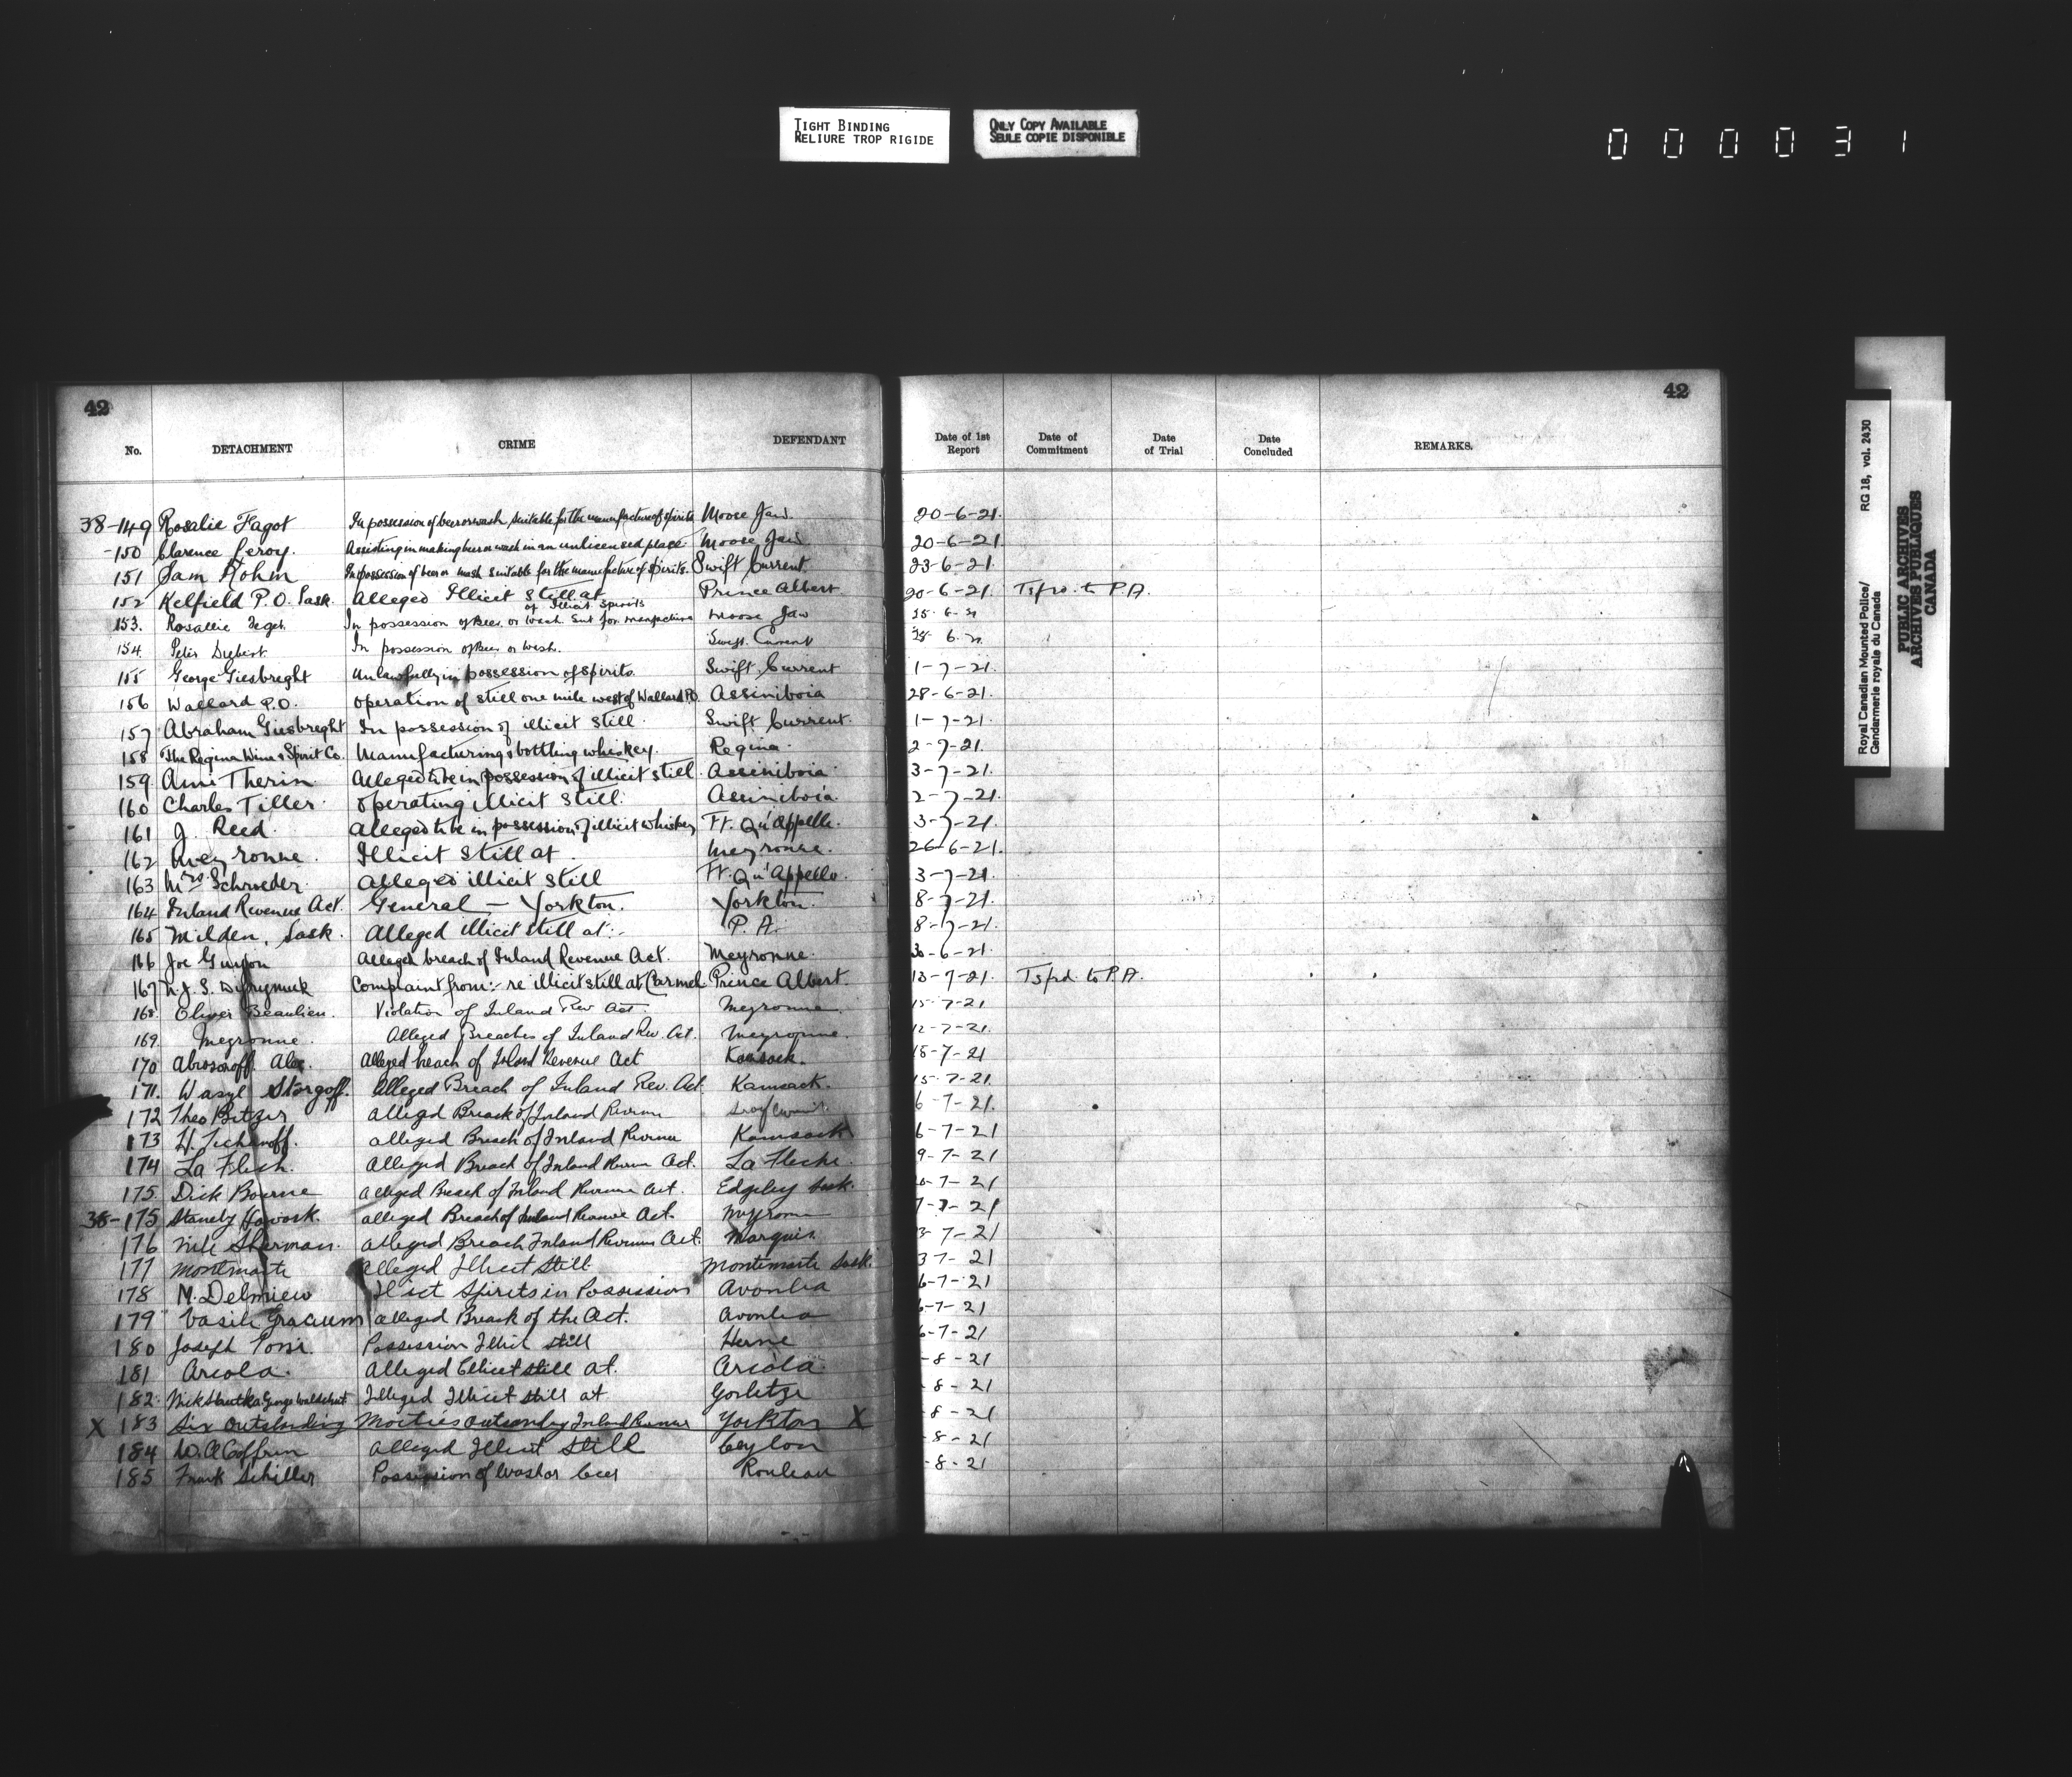 TIGHT BINDING
RELIURE TROP RIGIDE
ONLY COPY AVAILABLE
SEULE COPIE DISPONIBLE
000031
Royal Canadian Mounted Police/
Gendarmerie royale du Canada
RG 18, vol. 2430
PUBLIC ARCHIVES
ARCHIVES PUBLIQUES
CANADA
42 42
No. DETACHMENT CRIME DEFENDANT Date of 1st Report Date of Commitment Date of Trial Date Concluded REMARKS.
38-149 Rosalie Fagot In possession of beer or wash suitable for the manufacture of spirits Moose Jaw. 20-6-21.
-150 Clarence Leroy. Assisting in making beer or wash in an unlicensed place. Moose Jaw 20-6-21
151 Sam Hohm In possession of beer or mash suitable for the manufacture of spirits. Swift Current. 23-6-21.
152 Kelfield P.O. Sask. Alleged Illicit Still at Prince Albert 20-6-21. Tsfrd. to P.A.
153. Rosallie In possession of Beer or Wash Suit for manufacture of Illicit Spirits Moose Jaw
154. Peter In possession of Beer or Wash. Swift Current
155 George Giesbreght Unlawfully in possession of spirits. Swift Current 1-7-21.
156 Wallard P.O. Operation of still one mile west of Wallard P.O. Assiniboia 28-6-21.
157 Abraham Giesbreght In possession of illicit still. Swift Current. 1-7-21.
158 The Regina Wine & Spirit Co. Manufacturing & bottling whiskey. Regina. 2-7-21.
159 Ami Therin Alleged to be in possession of illicit still Assiniboia 3-7-21.
160 Charles Tiller. Operating illicit still. Assiniboia 2-7-21.
161 J. Reed. Alleged to be in possession of illicit whiskey Ft. Qu'Appelle. 3-7-21.
162 Meyronne. Illicit still at Meyronne. 26-6-21.
163 Mrs. Schroeder. Alleged illicit still Ft. Qu'Appelle. 3-7-21.
164 Inland Revenue Act. General — Yorkton. Yorkton. 8-7-21.
165 Milden, Sask. Alleged illicit still at:- P.A. 8-7-21.
166 Joe Alleged breach of Inland Revenue Act. Meyronne. 30-6-21.
167 Complaint from:- re illicit still at Carmel Prince Albert. 13-7-21. Tsfrd. to P.A.
168. Oliver Beaulieu. Violation of Inland Rev Act. Meyronne. 15-7-21
169. Meyronne. Alleged Breaches of Inland Rev. Act. Meyronne. 12-7-21.
170 Abrosoroff Alex. Alleged breach of Inland Revenue Act Kamsack. 15-7-21
171. Wasyl Storgoff. Alleged Breach of Inland Rev. Act. Kamsack. 15-7-21
172 Theo Bitzer Alleged Breach of Inland Revenue 6-7-21.
173 Alleged Breach of Inland Revenue Kamsack 6-7-21
174 La Flech. Alleged Breach of Inland Revenue Act. La Fleche. 9-7-21
175. Dick Bourne Alleged Breach of Inland Revenue Act. Edgeley Sask. -7-21
38-175 Stanely Alleged Breach of Inland Revenue Act. Meyronne 7-7-21
176 Sherman. Alleged Breach Inland Revenue Act. Marquis. 3-7-21
177 Montmarte Alleged Illicit Still Montmarte Sask. 3 7-21
178 M. Delmiew Illict Spirits in Possession Avonlea 6-7-21
179 Vasile Alleged Breach of the Act. Avonlea 6-7-21
180 Joseph Possession Illicit still Herne 6-7-21
181 Arcola. Alleged Illicit still at. Arcola. -8-21
182. Alleged Illicit still at Gorlitze -8-21
X 183 Six Outstanding Moeties outstanding Inland Revenue Yorkton X -8-21
184 W. A. Coffrin Alleged Illicit Still Ceylon -8-21
185 Frank Schiller Possession of Wash or beer Rouleau -8-21